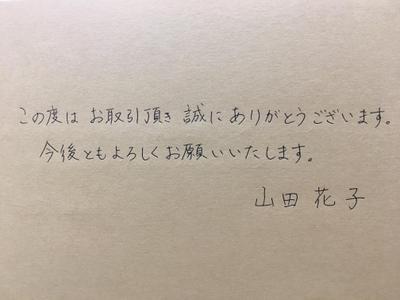 この度は お取引頂き 誠に ありがとうございます。
今後ともよろしくお願いいたします。
山田 花子